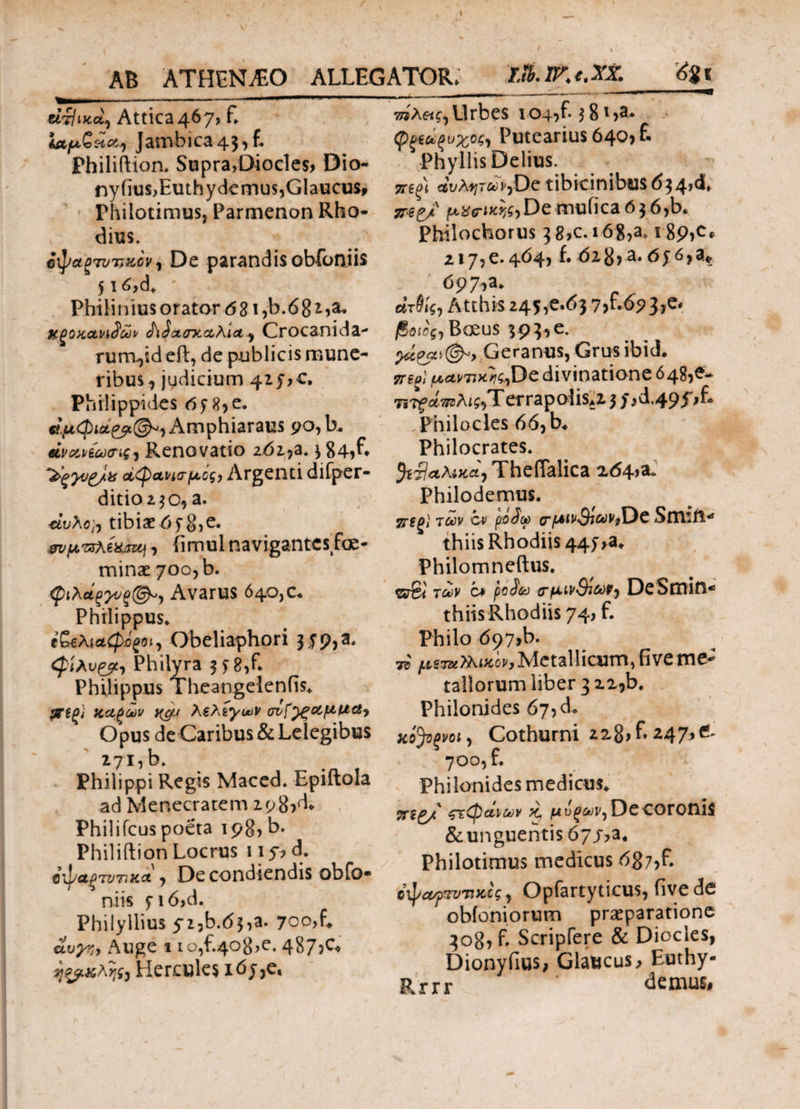 AB ATHENÆO ALLEGATOR. Lib. IV. c. XX. 681
ἀτθικὰ, Attica 467, f.
ἰαμβεῖα, Jambica 43, f.
Philiſtion. Supra, Diocles, Dio-
nyſius, Euthydemus, Glaucus,
Philotimus, Parmenon Rho-
dius.
ὀψαρτυτικὸν, De parandis obſoniis
516, d.
Philinius orator 681, b. 682, a.
κροκανιδῶν διδασκαλία, Crocanida-
rum, id eſt, de publicis mune-
ribus, judicium 425, c.
Philippides 658, e.
ἀμφιάραος, Amphiaraus 90, b.
ἀνανέωσις, Renovatio 262, a. 384, f.
ἀργυρίου ἀφανισμὸς, Argenti diſper-
ditio 230, a.
αὐλοὶ, tibiæ 658, e.
συμπλέουσαι, ſimul navigantes fœ-
minæ 700, b.
φιλάργυρος, Avarus 640, c.
Philippus.
ὀβελιαφόροι, Obeliaphori 359, a.
φιλύρα, Philyra 358, f.
Philippus Theangelenſis.
περὶ καρῶν καὶ λελέγων σύγγραμμα,
Opus de Caribus & Lelegibus
271, b.
Philippi Regis Maced. Epiſtola
ad Menecratem 298, d.
Philiſcus poëta 198, b.
Philiſtion Locrus 115, d.
ὀψαρτυτικὰ, De condiendis obſo-
niis 516, d.
Philyllius 52, b. 63, a. 700, f.
αὐγὴ, Auge 110, f. 408, e. 487, c.
ἡρακλῆς, Hercules 165, e.
πόλεις, Urbes 104, f. 381, a.
φρεωρύχος, Putearius 640, f.
Phyllis Delius.
περὶ αὐλητῶν, De tibicinibus 634, d.
περὶ μουσικῆς, De muſica 636, b.
Philochorus 38, c. 168, a. 189, c.
217, e. 464, f. 628, a. 656, a.
697, a.
ἀτθὶς, Atthis 245, e. 637, f. 693, e.
βοιὸς, Bœus 393, e.
γέρανος, Geranus, Grus ibid.
περὶ μαντικῆς, De divinatione 648, e.
τετράπολις, Terrapolis, 235, d. 495, f.
Philocles 66, b.
Philocrates.
θετταλικὰ, Theſſalica 264, a.
Philodemus.
περὶ τῶν ἐν ῥόδῳ σμινθίων, De Smin-
thiis Rhodiis 445, a.
Philomneſtus.
περὶ τῶν ἐν ῥόδῳ σμινθίων, De Smin-
thiis Rhodiis 74, f.
Philo 697, b.
τὸ μεταλλικὸν, Metallicum, ſive me-
tallorum liber 322, b.
Philonides 67, d.
κόθορνοι, Cothurni 228, f. 247, e.
700, f.
Philonides medicus.
περὶ στεφάνων καὶ μύρων, De coronis
& unguentis 675, a.
Philotimus medicus 687, f.
ὀψαρτυτικὸς, Opſartyticus, ſive de
obſoniorum præparatione
308, f. Scripſere & Diocles,
Dionyſius, Glaucus, Euthy-
Rrrr demus,